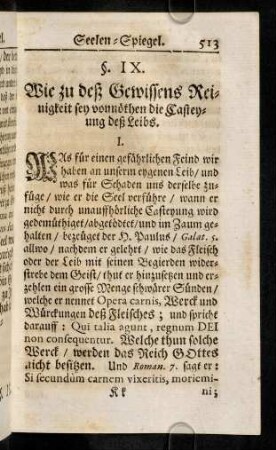 Seelen-Spiegel. 513
§. IX.
Wie zu deß Gewissens Rei-
nigkeit sey vonnöthen die Castey-
ung deß Leibs.
I.
WAs für einen gefährlichen Feind wir
haben an unserm eygenen Leib / und
was für Schaden uns derselbe zu-
füge / wie er die Seel verführe / wann er
nicht durch unauffhörliche Casteyung wird
gedemüthiget / abgetödtet / und im Zaum ge-
halten / bezeüget der H. Paulus / Galat. 5.
allwo / nachdem er gelehrt / wie das Fleisch
oder der Leib mit seinen Begierden wider-
strebe dem Geist / thut er hinzusetzen und er-
zehlen ein grosse Menge schwärer Sünden /
welche er nennet Opera carnis, Werck und
Würckungen deß Fleisches; und spricht
darauff: Qui talia agunt, regnum DEI
non consequentur. Welche thun solche
Werck / werden das Reich GOttes
nicht besitzen. Und Roman. 7. sagt er:
Si secundùm carnem vixeritis, moriemi-
Kk ni;